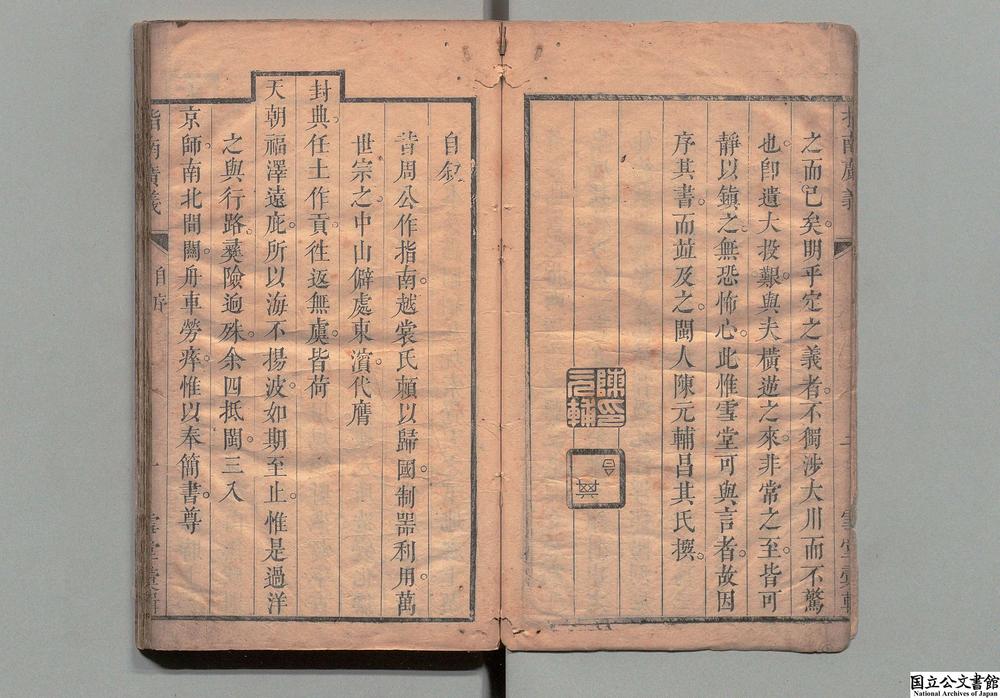 指南廣義
之而已矣明乎定之義者不獨涉大川而不驚
也卽遺大投艱與夫橫逆之來非常之至皆可
靜以鎮之無恐怖心此惟雪堂可與言者故因
序其書而竝及之閩人陳元輔昌其氏撰
陳元輔印
自叙
昔周公作指南越裳氏頼以歸國制噐利用萬
世宗之中山僻處東濵代膺
封典任土作貢徃返無虞皆荷
天朝福澤遠庇所以海不揚波如期至止惟是過洋
之與行路彛險逈殊余四抵閩三入
京師南北間關舟車勞瘁惟以奉簡書尊
指南廣義
自序
一
国立公文書館
National Archives of Japan